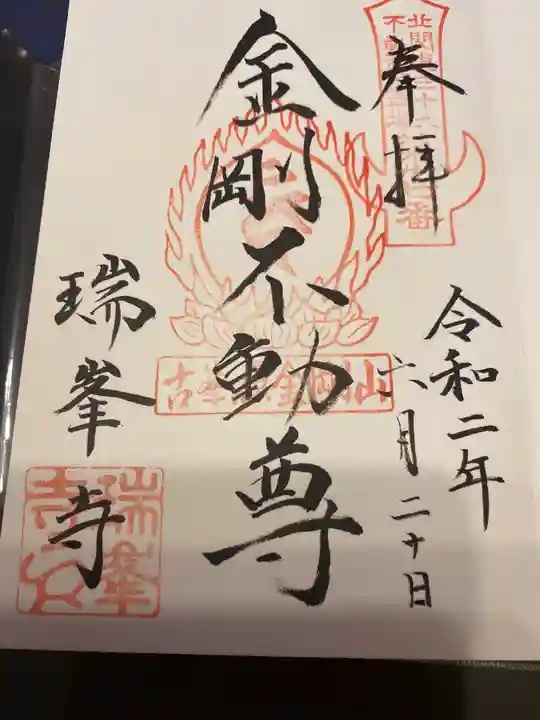 奉拝
令和二年
六月二十日
金剛不動尊
瑞峯寺
北関東三十六
不動
番
古峯原金剛山
瑞峯寺印